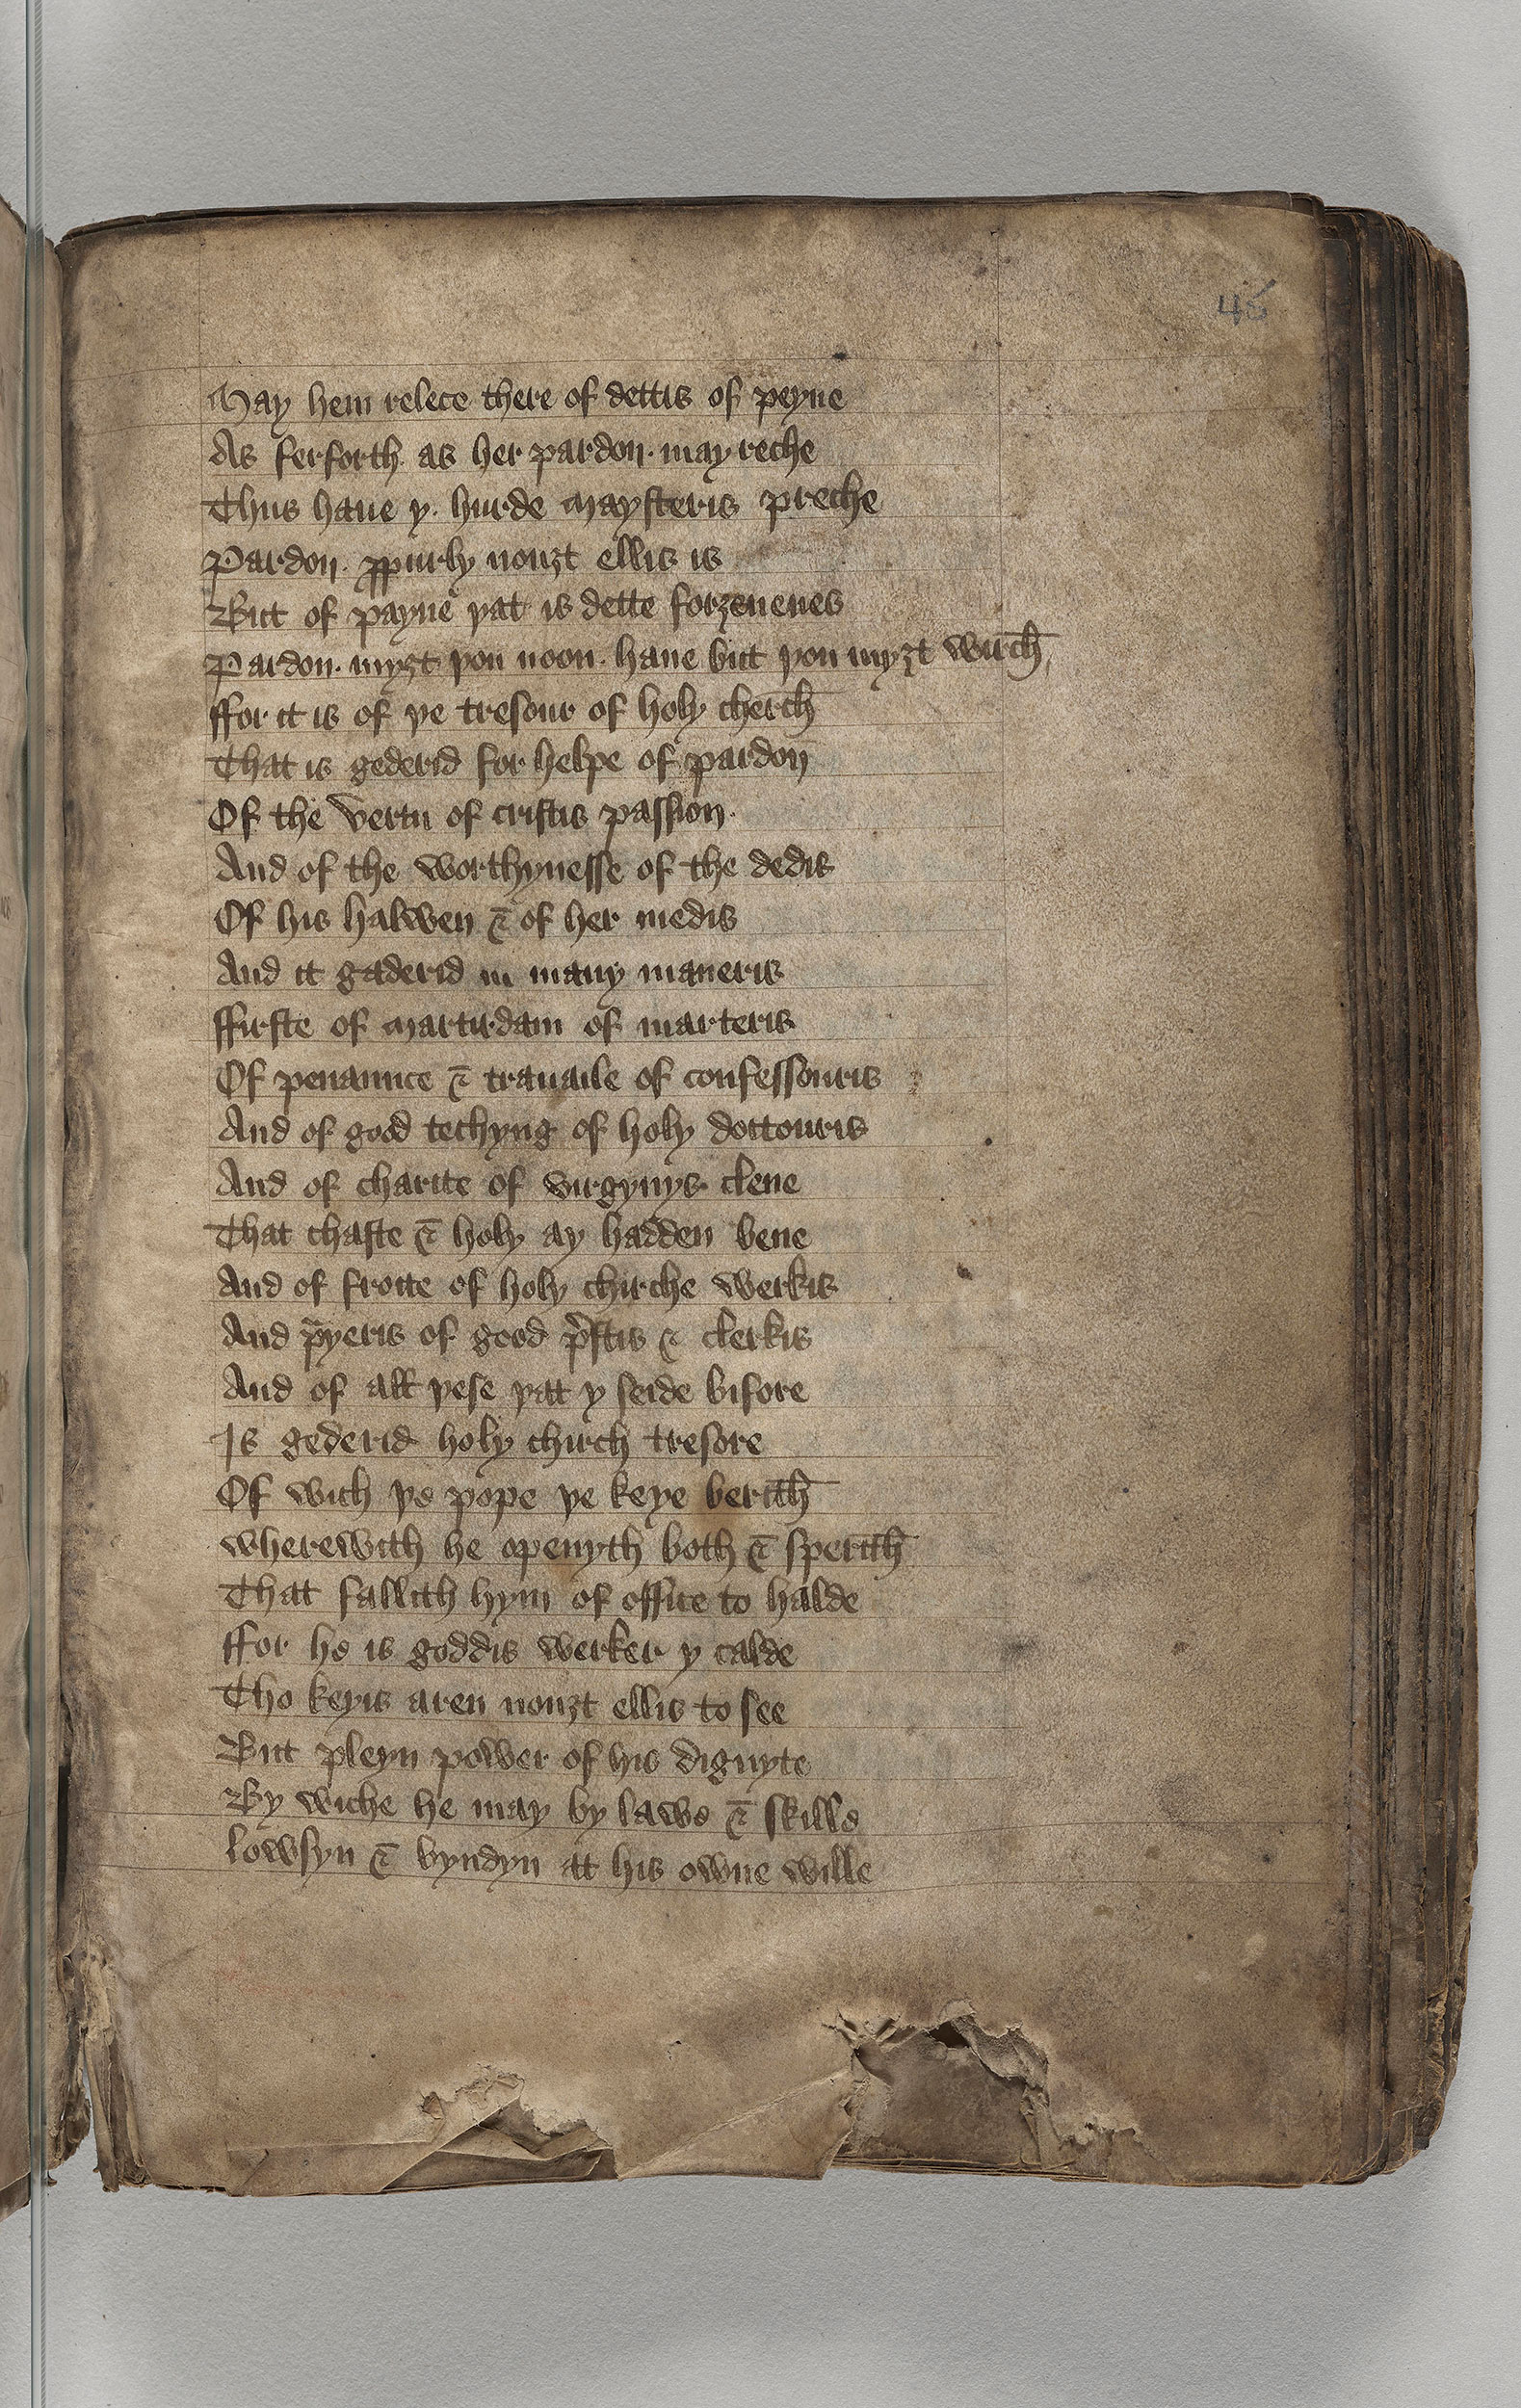 45
May hem relece there of dettis of peyne
As ferforth as her pardon· may reche
Thus haue y· hurde maysteris preche
Pardon· ꝓpurly nouȝt ellis is
But of payne þat is dette forȝeuenes
Pardon· myȝt þou noon· haue but þou myȝt wirch̄
ffor it is of þe tresour of holy cherch̄
That is gederid for helpe of pardon̄
Of the vertu of cristis passion·
And of the worthynesse of the dedis
Of his halwen & of her medis
And it gaderid in many maneris
ffirste of martirdam of marteris
Of penaunce & trauaile of confessouris
And of good techyng of holy doctouris
And of charite of virgynys clene
That chaste & holy ay hadden bene
And of froite of holy chirche werkis
And p̄yeris of good p̄stis & clerkis
And of all þese þat y seide bifore
Is gederid holy chirch tresore
Of wich þe pope þe keye berith̄
wherewith he openyth both & sperith̄
That fallith hym of office to halde
ffor he is goddis werker y calde
Tho keyis aren nouȝt ellis to see
But pleyn power of his dignyte
By wiche he may by lawe & skille
lowsyn & byndyn at his owne wille